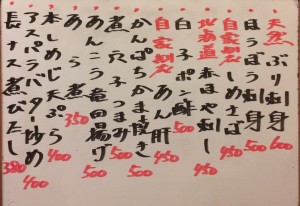 天然 ぶり刺身 600
ほうぼう刺身 500
自家製 しめさば 450
北海道 赤ほや刺し 450
白子ポン酢 500
自家製 あん肝 500
かんぱちかま焼き 500
煮穴子つまみ 500
あんこう竜田揚げ 500
あら 350
本しめじ天ぷら 400
アスパラバター炒め 400
長ナス煮びたし 380